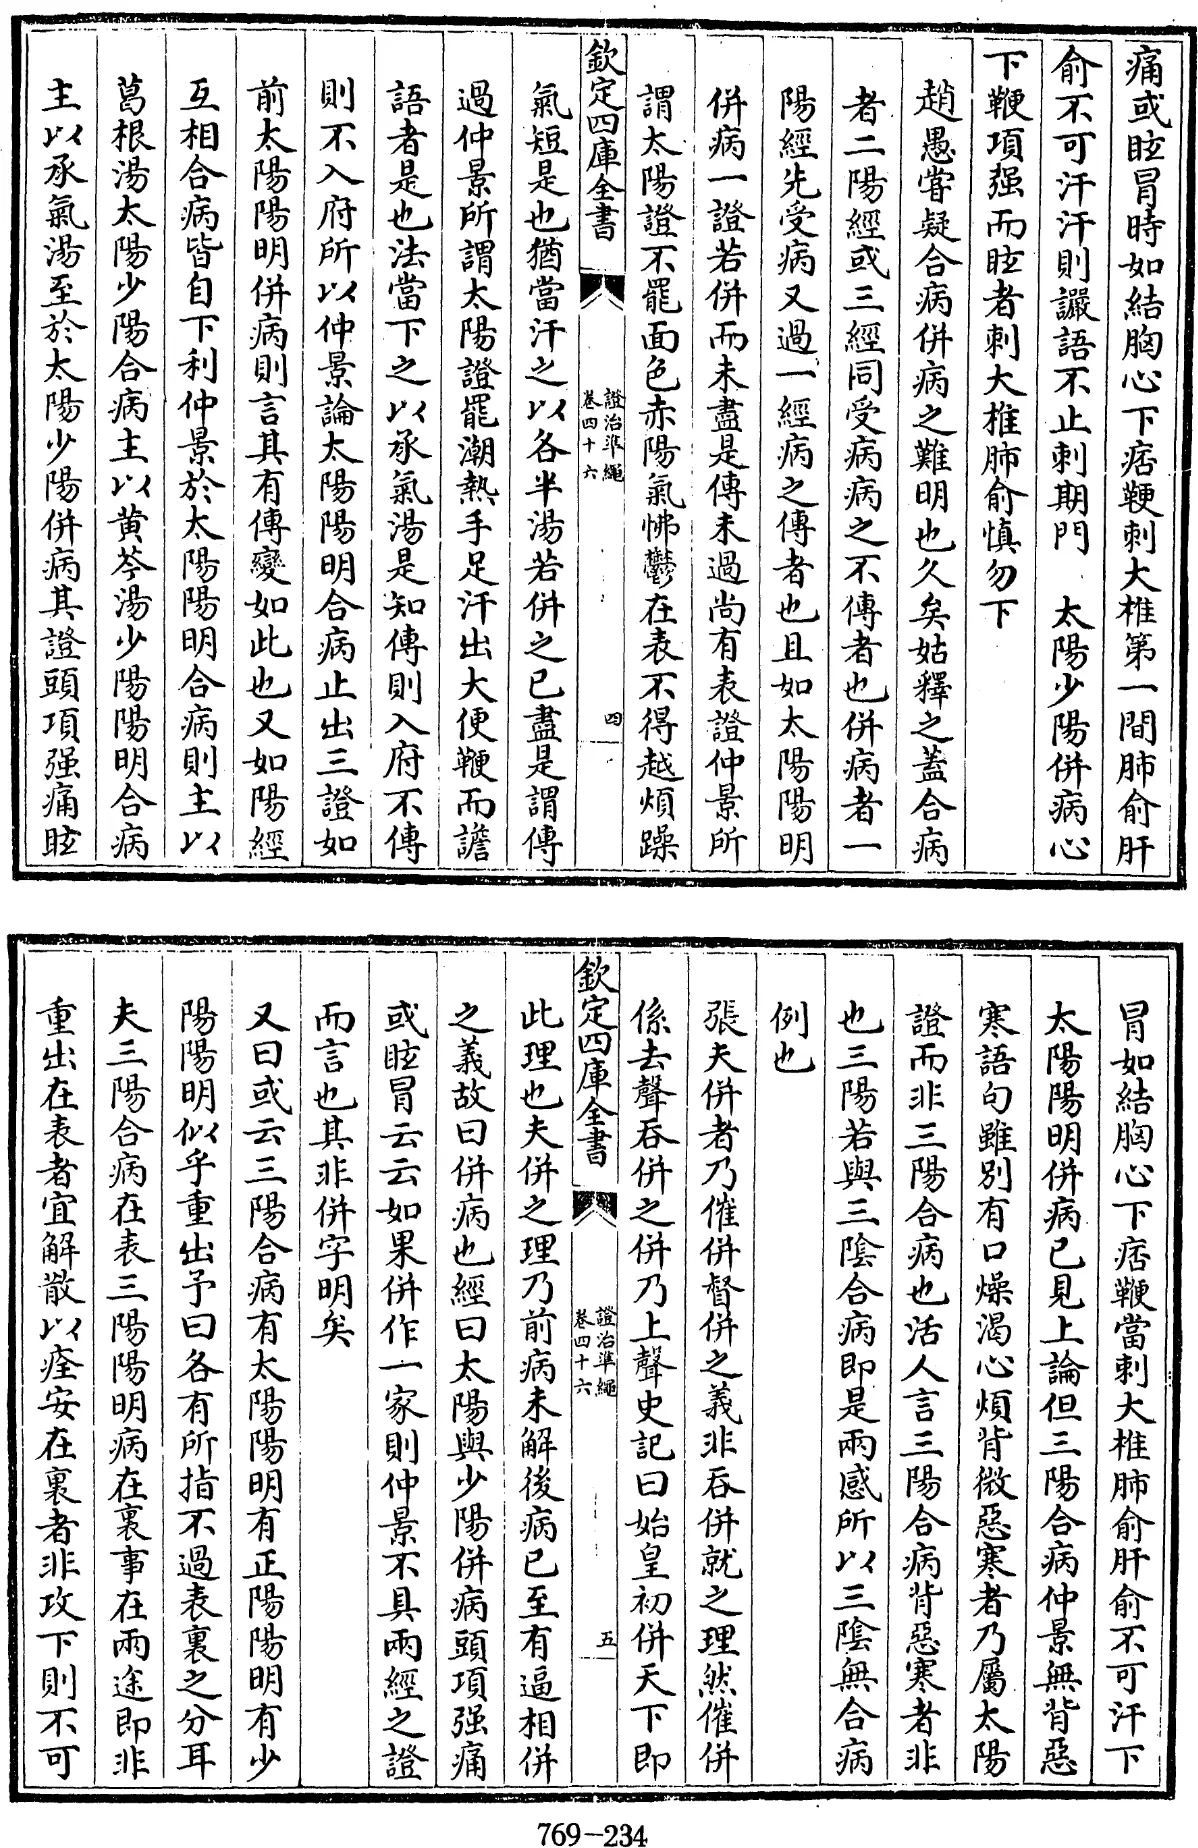 痛或眩冒時如結胸心下痞鞕刺大椎第一間肺俞肝
俞不可汗汗則讝語不止刺期門　太陽少陽併病心
下鞕項强而眩者刺大椎肺俞慎勿下
趙愚甞疑合病併病之難明也久矣姑釋之蓋合病
者二陽經或三經同受病病之不傳者也併病者一
陽經先受病又過一經病之傳者也且如太陽陽明
併病一證若併而未盡是傳未過尚有表證仲景所
謂太陽證不罷面色赤陽氣怫鬱在表不得越煩躁
欽定四庫全書
證治準繩
卷四十六
四
氣短是也猶當汗之以各半湯若併之已盡是謂傳
過仲景所謂太陽證罷潮熱手足汗出大便鞕而讝
語者是也法當下之以承氣湯是知傳則入府不傳
則不入府所以仲景論太陽陽明合病止出三證如
前太陽陽明併病則言其有傳變如此也又如陽經
互相合病皆自下利仲景於太陽陽明合病則主以
葛根湯太陽少陽合病主以黄芩湯少陽陽明合病
主以承氣湯至於太陽少陽併病其證頭項强痛眩
冒如結胸心下痞鞕當刺大椎肺俞肝俞不可汗下
太陽陽明併病已見上論但三陽合病仲景無背惡
寒語句雖別有口燥渴心煩背微惡寒者乃屬太陽
證而非三陽合病也活人言三陽合病背惡寒者非
也三陽若與三陰合病即是兩感所以三陰無合病
例也
張夫併者乃催併督併之義非吞併就之理然催併
係去聲吞併之併乃上聲史記曰始皇初併天下即
欽定四庫全書
證治準繩
卷四十六
五
此理也夫併之理乃前病未解後病已至有逼相併
之義故曰併病也經曰太陽與少陽併病頭項强痛
或眩冒云云如果併作一家則仲景不具兩經之證
而言也其非併字明矣
又曰或云三陽合病有太陽陽明有正陽陽明有少
陽陽明似乎重出予曰各有所指不過表裏之分耳
夫三陽合病在表三陽陽明病在裏事在兩途即非
重出在表者宜解散以痊安在裏者非攻下則不可
769-234